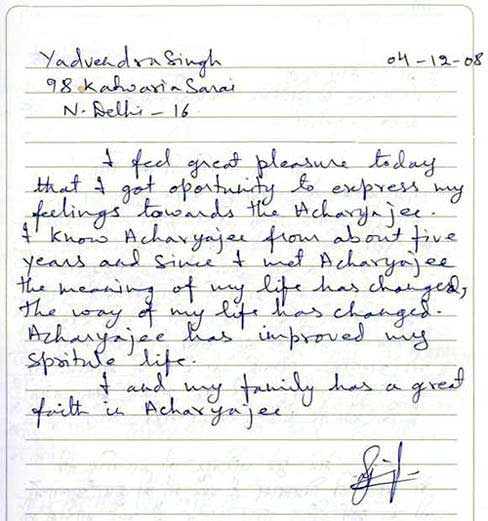 Yadvendra Singh 04-12-08
98 Katwaria Sarai
N. Delhi - 16
I feel great pleasure today
that I got oportunity to express my
feelings towards the Acharyajee.
I know Acharyajee from about five
years and since I met Acharyajee
the meaning of my life has changed,
the way of my life has changed.
Acharyajee has improved my
spritule life.
I and my family has a great
faith in Acharyajee.